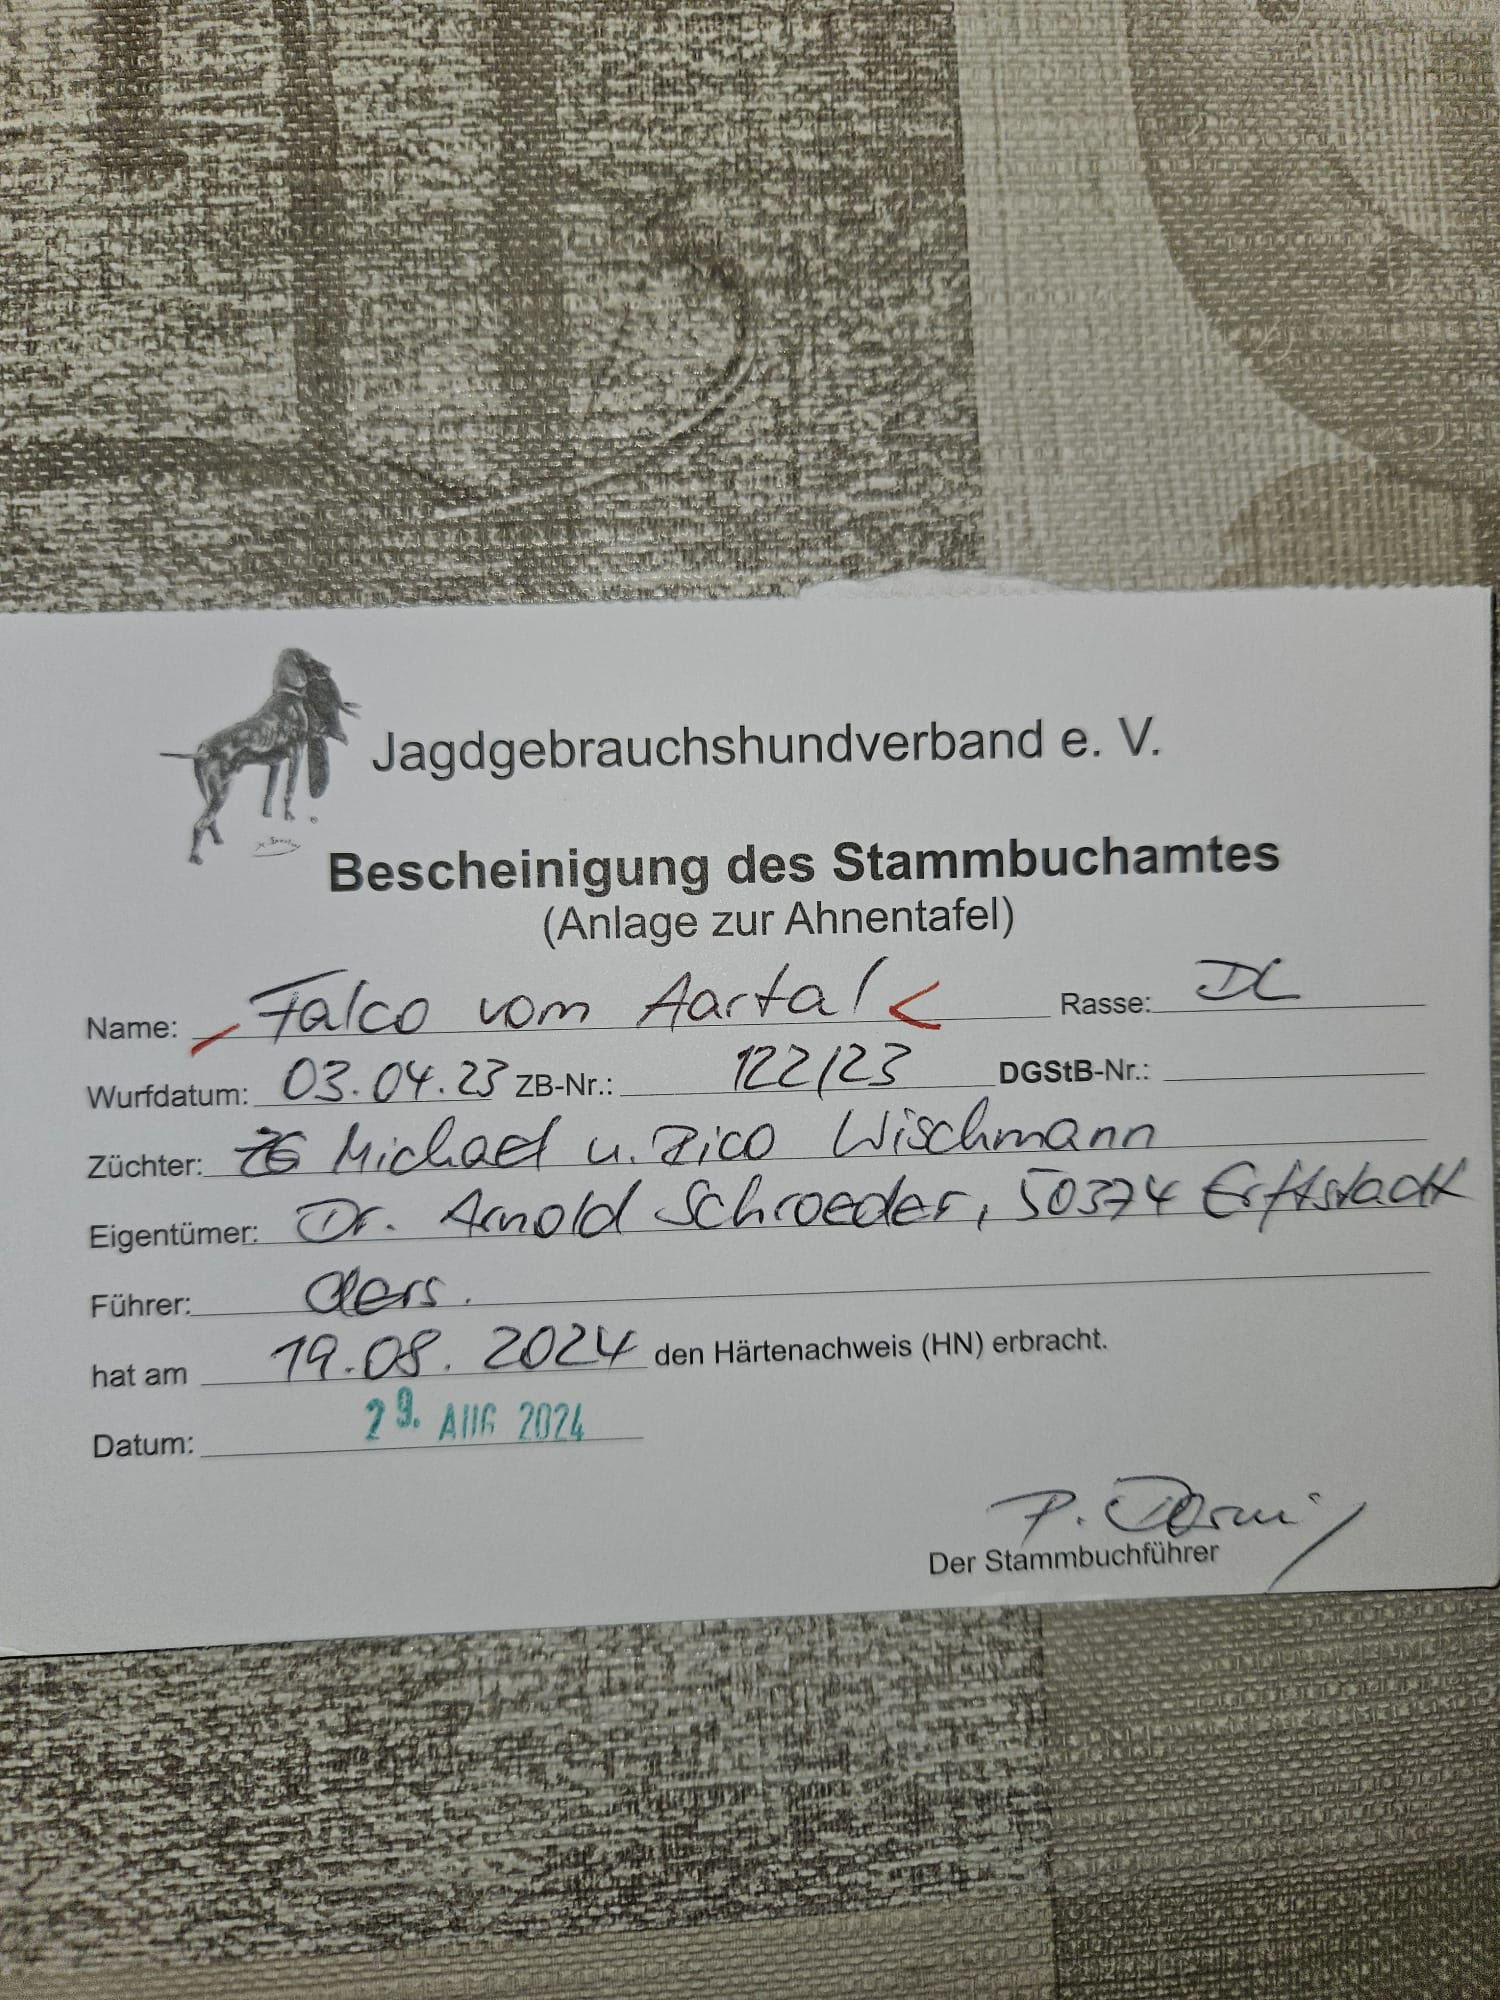 Jagdgebrauchshundverband e. V.
Bescheinigung des Stammbuchamtes
(Anlage zur Ahnentafel)
Name: Falco vom Aartal Rasse: DL
Wurfdatum: 03.04.23 ZB-Nr.: 122/23 DGStB-Nr.:
Züchter: ZG Michael u. Rico Wischmann
Eigentümer: Dr. Arnold Schroeder, 50374 Erftstadt
Führer: ders.
hat am 19.08.2024 den Härtenachweis (HN) erbracht.
Datum: 29. AUG 2024
P.
Der Stammbuchführer